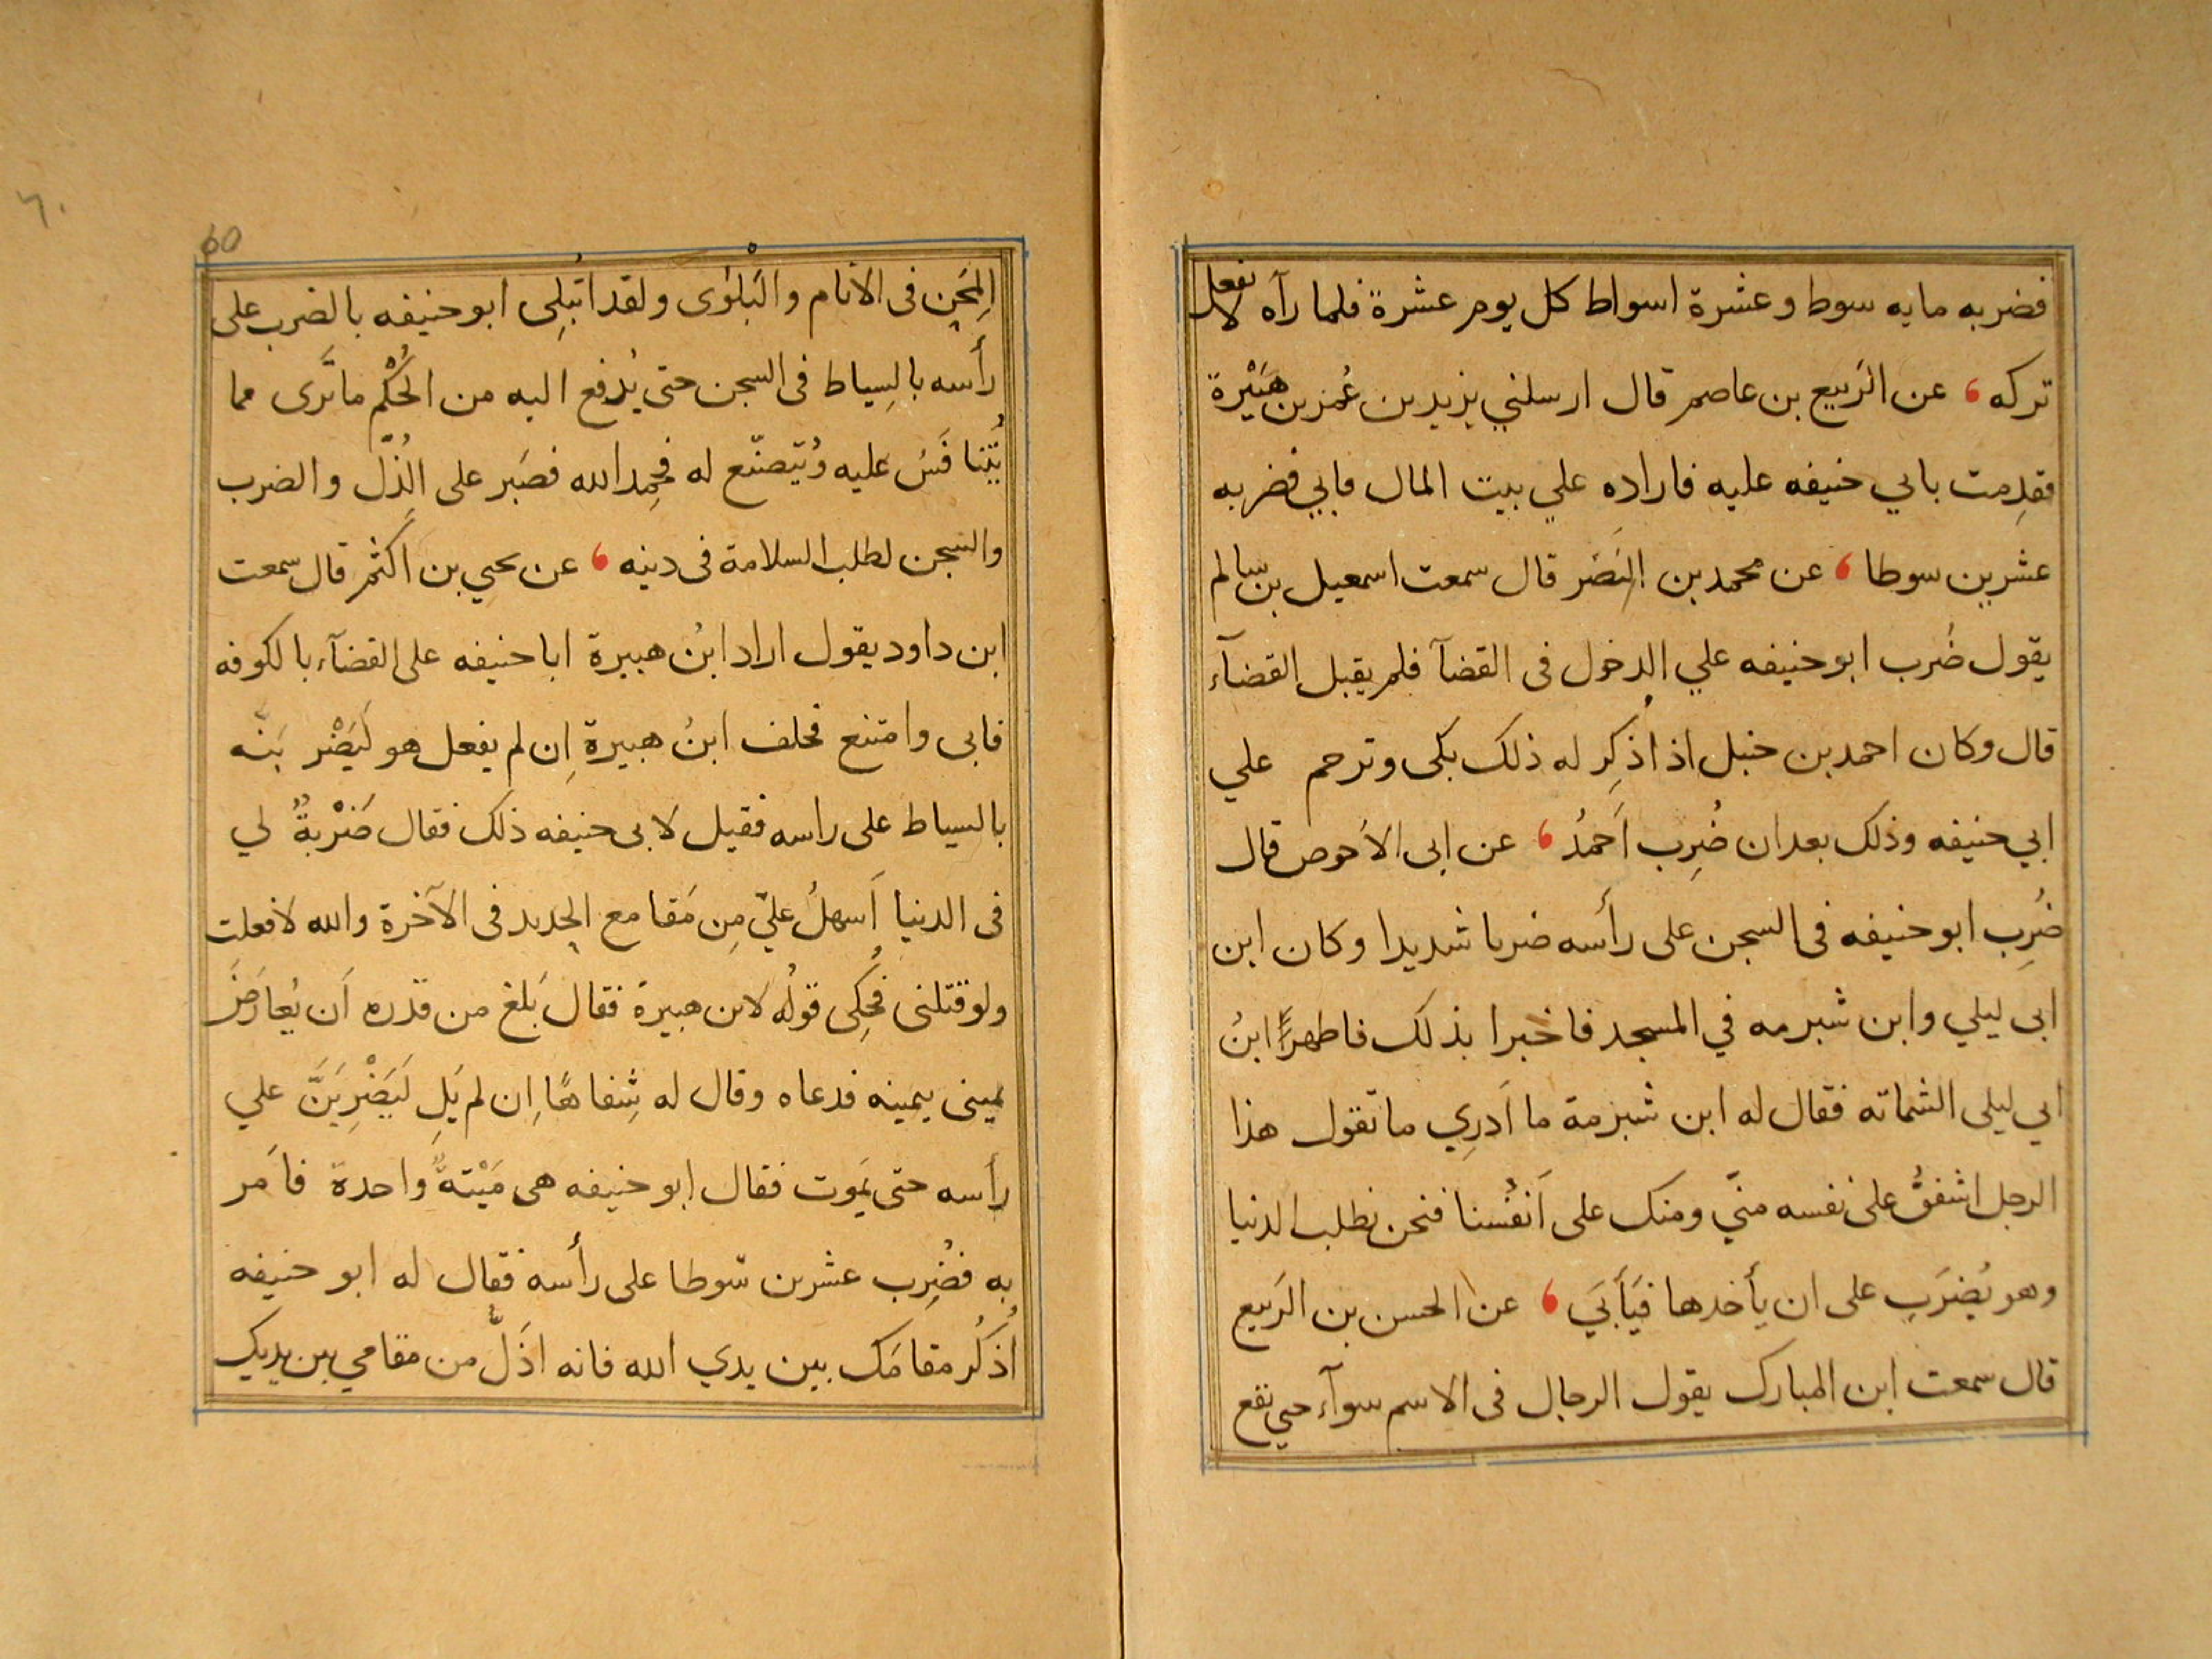 فضربه مايه سوط وعشرة اسواط كل يوم عشرة فلما رآه لا يفعل
تركه ، عن الرَبيع بن عاصم قال ارسلني يزيد بن عُمر بن هبَيْرة
فقدِمت بابي حنيفه عليه فاراده علي بيت المال فابي فضربه
عشرين سوطا ، عن محمد بن النَضر قال سمعت اسمعيل بن سالم
يقول ضُرب ابو حنيفه علي الدخول فى القضآ فلم يقبل القضآء
قال وكان احمد بن حنبل اذا ذُكِر له ذلك بكى وترحم علي
ابي حنيفه وذلك بعد ان ضُرِب اَحمدُ ، عن ابى الاَحوص قال
ضُرِب ابو حنيفه فى السجن على رأسه ضربا شديدا وكان ابن
ابى ليلي وابن شبرمه في المسجد فاخبرا بذلك فاظهر ابنُ
ابي ليلى الشماته فقال له ابن شبرمة ما اَدرِي ما تقول هذا
الرجل اشفقُ على نفسه منّي ومنك على اَنفُسنا فنحن نطلب الدنيا
وهو يُضرَب على ان يأخدها فيَأبَي ، عن الحسن بن الرَبيع
قال سمعت ابن المبارك يقول الرجال فى الاسم سوآء حتي تقع
60
٦٠
المِحَن فى الاَنام والبَلْوٰى ولقد ابتُلِى ابو حنيفه بالضرب على
رأسه بالسِياط فى السجن حتى يُدفع اليه من الحُكْم ما تَرى مما
يُتَنافَسُ عليه ويُتَصنّع له فحمِد الله فصَبر على الذُلّ والضرب
والسجن لطلب السلامة فى دينه ، عن يحيي بن اَكثم قال سمعت
ابن داود يقول اراد ابنُ هبيرة ابا حنيفه على القضآء بالكوفه
فابى وامتنع فحلف ابنُ هبيرة اِن لم يفعل هو ليَضْربَنّه
بالسياط على راسه فقيل لابى حنيفه ذلك فقال ضَرْبةٌ لي
فى الدنيا اَسهلُ عليّ مِن مَقامع الحديد فى الآخرة والله لا فعلت
ولو قتلنى فحُكِى قولُه لابن هبيرة فقال بَلغ من قدره اَن يُعارَضَ
يمينى بيمينه فدعاه وقال له شِفاهًا اِن لم يَلِ ليَضْرِبَنَّ علي
رأسه حتى يَموت فقال ابو حنيفه هى مَيْتةٌ واحدة فاَمر
به فضُرِب عشرين سَوطا على رأسه فقال له ابو حنيفه
اُذكُر مقامَك بين يدي الله فانه اذَلّ من مقامي بين يديك